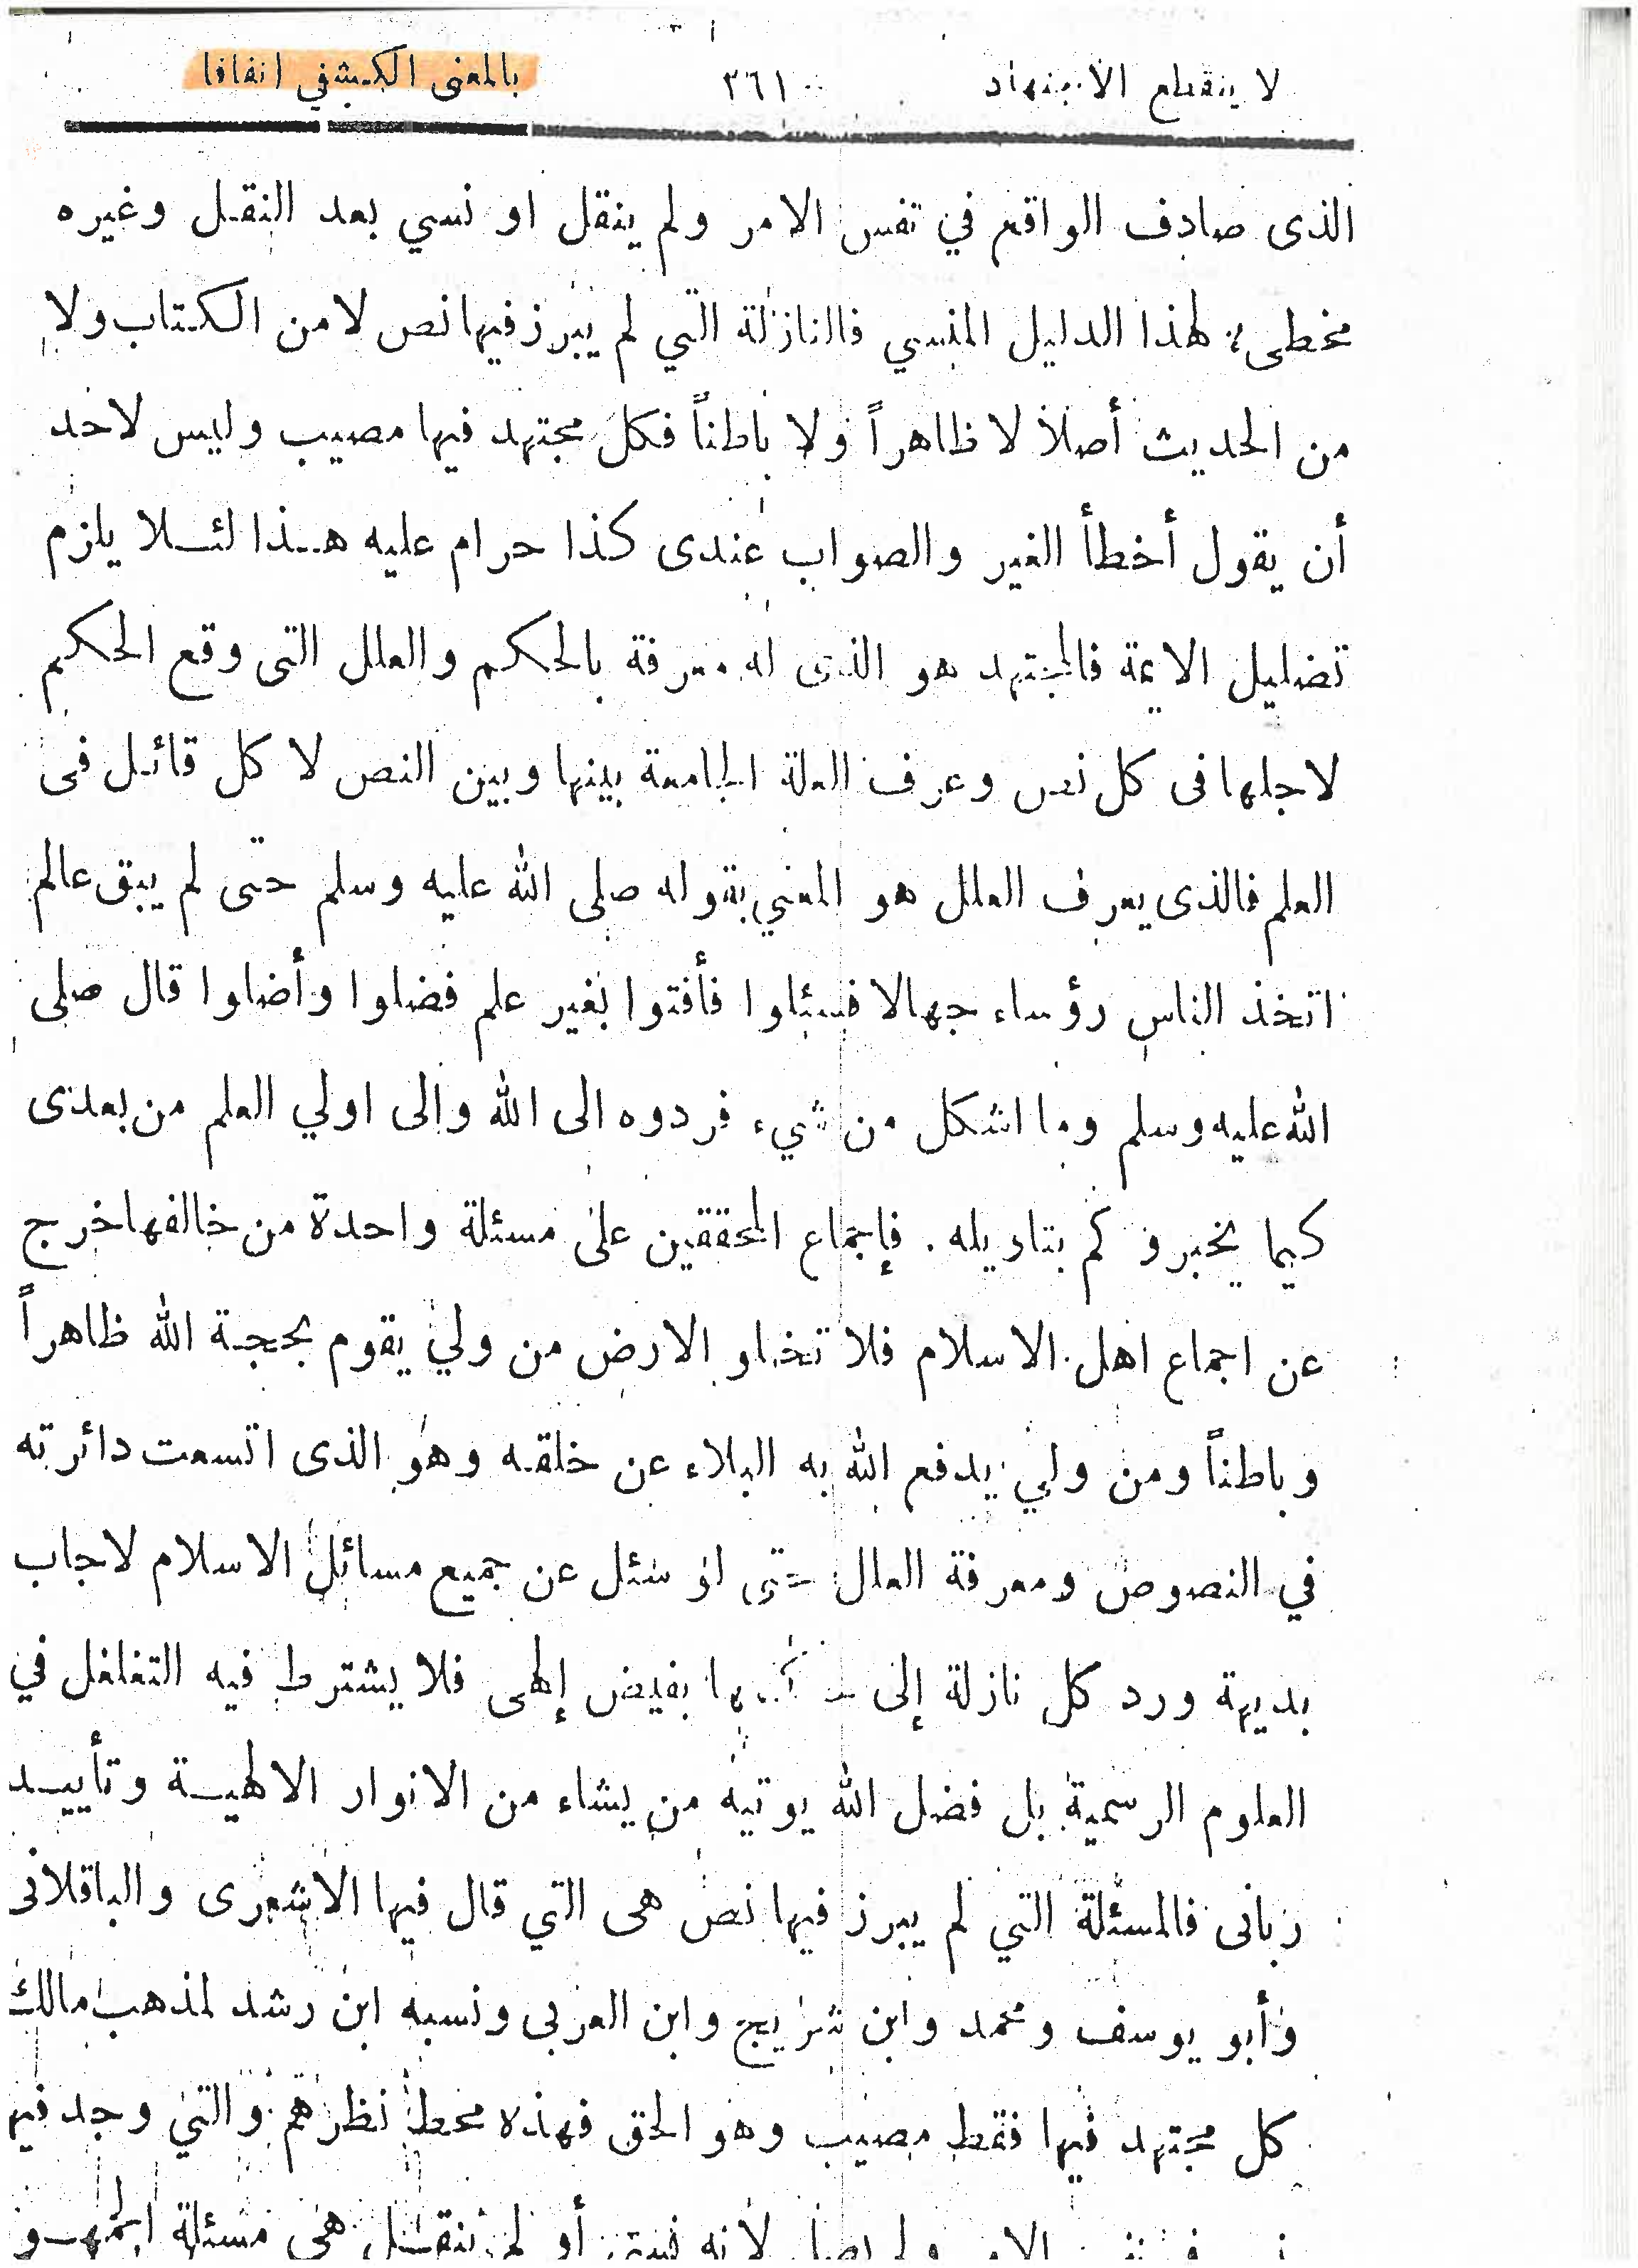 لا ينقطع الاجتهاد ٣٦١ بالمعنى الكشفي اتفاقا
الذى صادف الواقع في نفس الامر ولم ينقل او نسي بعد النقل وغيره
مخطىء لهذا الدليل المنسي فالنازلة التي لم يبرز فيها نص لا من الكتاب ولا
من الحديث أصلا لا ظاهراً ولا باطناً فكل مجتهد فيها مصيب وليس لاحد
أن يقول أخطأ الغير والصواب عندى كذا حرام عليه هذا لئلا يلزم
تضليل الائمة فالمجتهد هو الذى له معرفة بالحكم والعلل التى وقع الحكم
لاجلها فى كل نص وعرف العلة الجامعة بينها وبين النص لا كل قائل فى
العلم فالذى يعرف العلل هو المعني بقوله صلى الله عليه وسلم حتى لم يبق عالم
اتخذ الناس رؤساء جهالا فسئلوا فأفتوا بغير علم فضلوا وأضلوا قال صلى
الله عليه وسلم وما اشكل من شيء فردوه الى الله والى اولي العلم من بعدى
كيما يخبرونكم بتاويله . فإجماع المحققين على مسئلة واحدة من خالفها خرج
عن اجماع اهل الاسلام فلا تخلو الارض من ولي يقوم بحجة الله ظاهراً
وباطناً ومن ولي يدفع الله به البلاء عن خلقه وهو الذى اتسعت دائرته
في النصوص ومعرفة العلل حتى لو سئل عن جميع مسائل الاسلام لاجاب
بديهة ورد كل نازلة إلى بفيض إلهى فلا يشترط فيه التغلغل في
العلوم الرسمية بل فضل الله يوتيه من يشاء من الانوار الالهية وتأييد
ربانى فالمسئلة التي لم يبرز فيها نص هى التي قال فيها الاشعرى والباقلانى
وأبو يوسف ومحمد وابن شريج وابن العربى ونسبه ابن رشد لمذهب مالك
كل مجتهد فيها فقط مصيب وهو الحق فهذه محط نظرهم والتي وجد فيها
لانه أو لم ينقل هى مسئلة